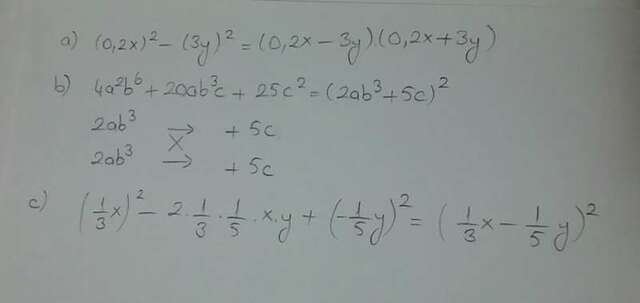 a) (0,2x)² - (3y)² = (0,2x - 3y).(0,2x + 3y)
b) 4a²b⁶ + 20ab³c + 25c² = (2ab³ + 5c)²
2ab³ → + 5c
X
2ab³ → + 5c
c) (1/3 x)² - 2 . 1/3 . 1/5 . x . y + (-1/5 y)² = (1/3 x - 1/5 y)²